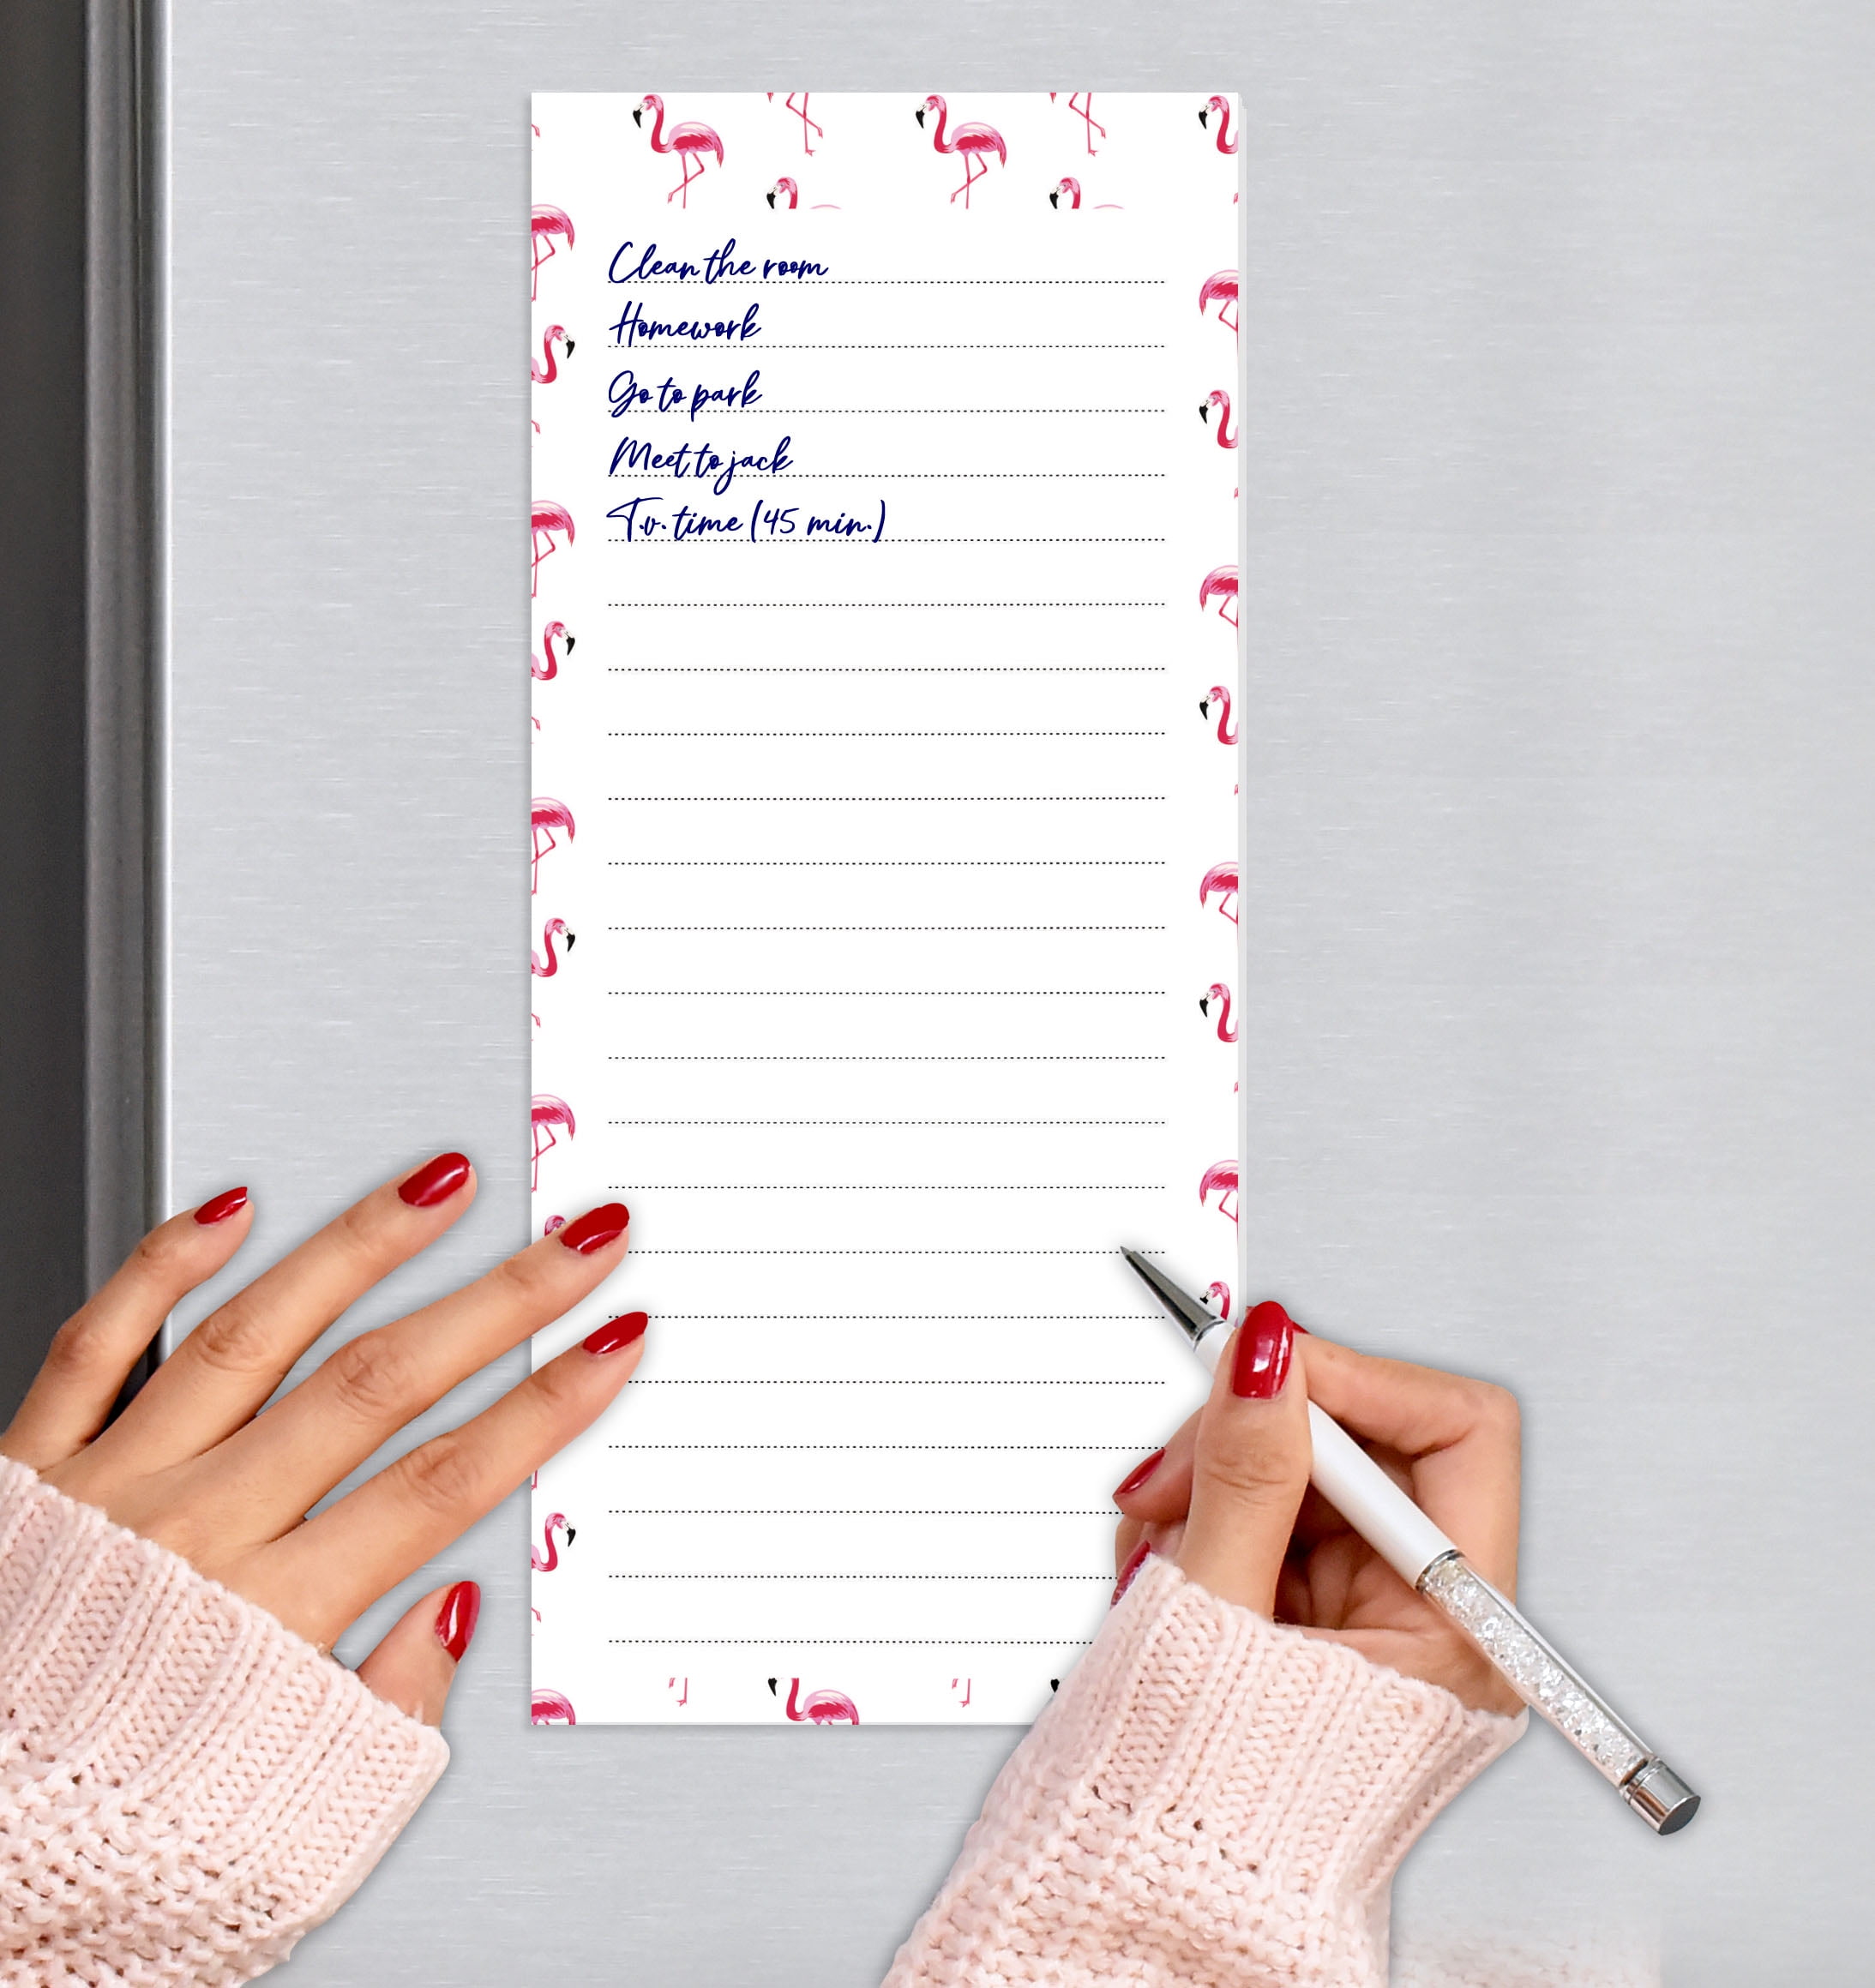 Clean the room
Homework
Go to park
Meet to jack
T.v. time (45 min.)